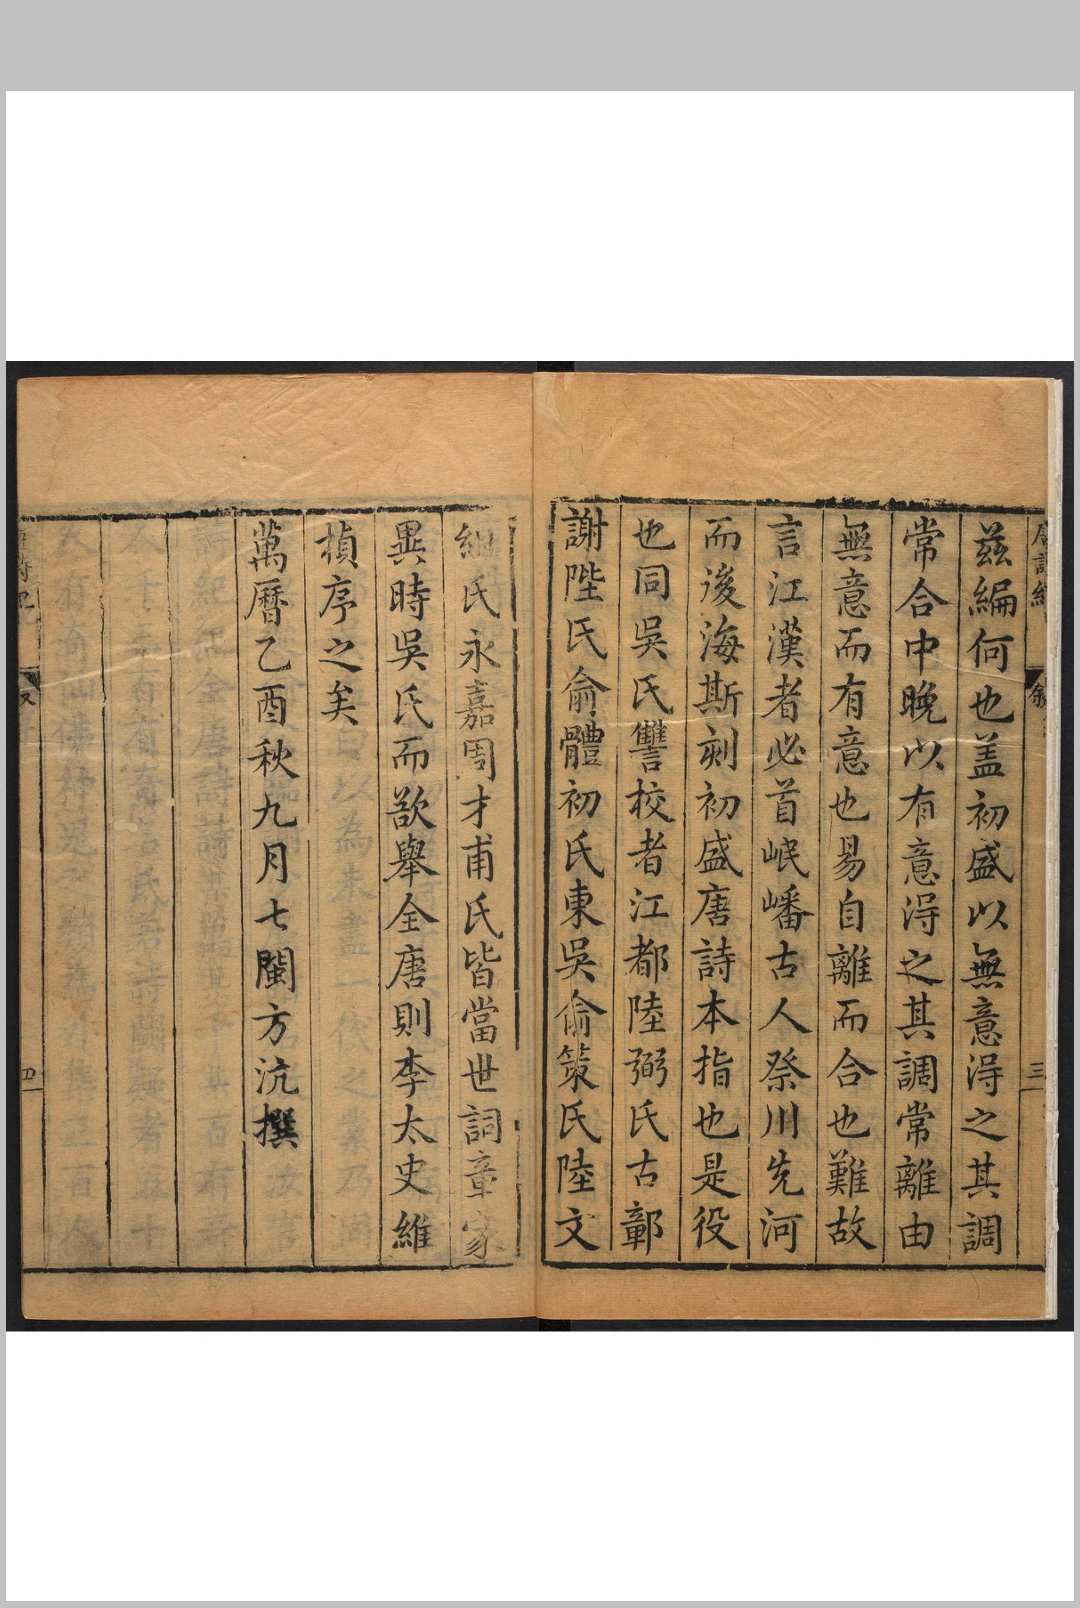 茲編何也盖初盛以無意得之其調
常合中晚以有意得之其調常離由
無意而有意也易自離而合也難故
言江漢者必首岷嶓古人祭川先河
而後海斯刻初盛唐詩本指也是役
也同吳氏讐校者江都陸弼氏古鄣
謝陛氏俞體初氏東吳俞策氏陸文
組氏永嘉周才甫氏皆當世詞章家
異時吳氏而欲舉全唐則李太史維
楨序之矣
萬曆乙酉秋九月七閩方沆撰
三
四